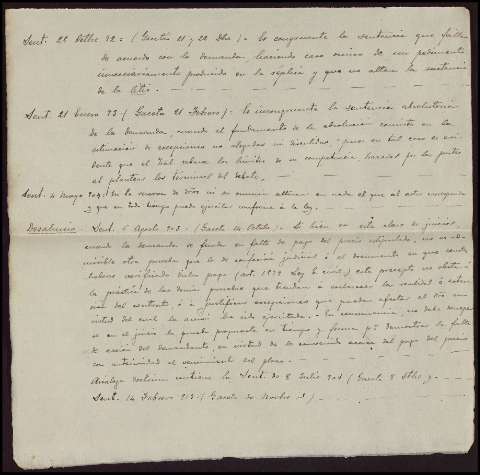 Sent. 22 Octbre 92 = (Gaceta 21 y 22 Dbe) - Es congruente la sentencia que falla
de acuerdo con la demanda, haciendo caso omiso de un pedimento
innecesariamente producido en la réplica y que no altera la sustancia
de la litis. — — —
Sent. 21 Enero 93 - (Gaceta 21 Febrero) - Es incongruente la sentencia absolutoria
de la demanda, cuando el fundamento de la absolución consiste en la
estimación de excepciones no alegadas ni discutidas; pues en tal caso es evi-
dente que el Tral rebasa los límites de su competencia trazados por las partes
al plantear los términos del debate. — —
Sent. 4 Mayo 903: la reserva de dros ni su omisión altera en nada el que al actor corresponda
y que en todo tiempo puede ejercitar conforme a la ley. — —
Desahucio - Sent. 5 Agosto 903: (Gaceta Octubre) - Si bien en esta clase de juicios,
cuando la demanda se funda en falta de pago del precio estipulado, no es ad-
misible otra prueba que la de confesión judicial ó el documento en que conste
haberse verificado dicho pago (art. 1579 Ley E. civil) este precepto no obsta á
la práctica de las demás pruebas que tiendan á esclarecer la realidad ó exten-
sión del contrato ó á justificar excepciones que puedan afectar al dro en
virtud del cual la acción ha sido ejercitada. - En consecuencia, no debe denegar-
se en el juicio la prueba propuesta en tiempo y forma pª demostrar la falta
de acción del demandante, en virtud de lo convenido acerca del pago del precio
con anterioridad al vencimiento del plazo. —
Análoga doctrina contiene la Sent. de 8 Julio 904 (Gaceta 8 Stbe) y —
Sent. 14 Febrero 905 (Gaceta de Marzo) — — —